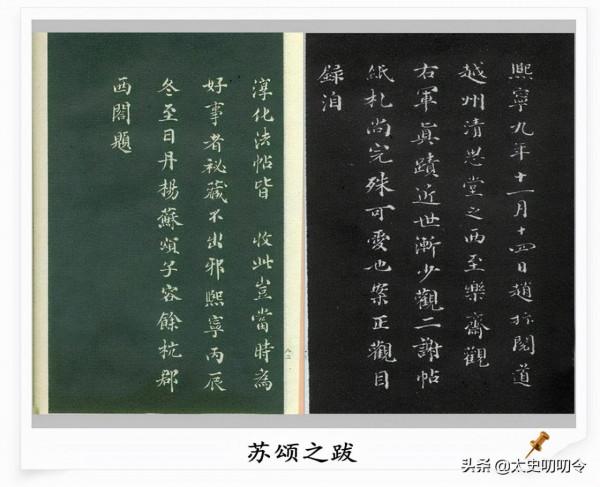 熙寧九年十一月十四日趙抃閱道
越州清思堂之西至樂齋觀
右軍眞蹟近世漸少觀二謝帖
紙札尚完殊可愛也案正觀目
録洎
淳化法帖皆 收此豈當時為
好事者祕藏不出邪熙寧丙辰
冬至日丹揚蘇頌子容餘杭郡
西閣題
苏颂之跋
头条 @太史叨叨令